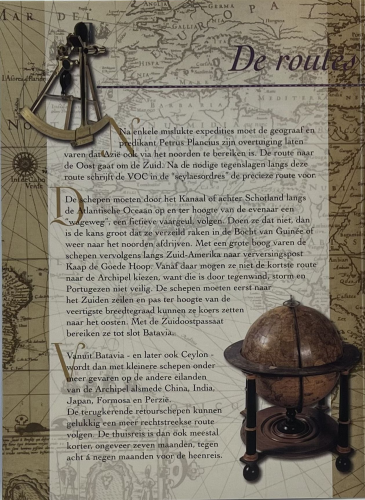 MAR DEL
EUROPA
De routes
Na enkele mislukte expedities moet de geograaf en
predikant Petrus Plancius zijn overtuiging laten
varen dat Azië ook via het noorden te bereiken is. De route naar
de Oost gaat om de Zuid. Na de nodige tegenslagen langs deze
route schrijft de VOC in de "seylaesordres" de precieze route voor.
De schepen moeten door het Kanaal of achter Schotland langs
de Atlantische Oceaan op en ter hoogte van de evenaar een
"wageweg", een fictieve vaargeul, volgen. Doen ze dat niet, dan
is de kans groot dat ze verzeild raken in de Bocht van Guinée of
weer naar het noorden afdrijven. Met een grote boog varen de
schepen vervolgens langs Zuid-Amerika naar verversingspost
Kaap de Goede Hoop. Vanaf daar mogen ze niet de kortste route
naar de Archipel kiezen, want die is door tegenwind, storm en
Portugezen niet veilig. De schepen moeten eerst naar
het Zuiden zeilen en pas ter hoogte van de
veertigste breedtegraad kunnen ze koers zetten
naar het oosten. Met de Zuidoostpassaat
bereiken ze tot slot Batavia.
Vanuit Batavia - en later ook Ceylon -
wordt dan met kleinere schepen onder
meer gevaren op de andere eilanden
van de Archipel alsmede China, India,
Japan, Formosa en Perzië.
De terugkerende retourschepen kunnen
gelukkig een meer rechtstreekse route
volgen. De thuisreis is dan ook meestal
korter, ongeveer zeven maanden, tegen
acht á negen maanden voor de heenreis.